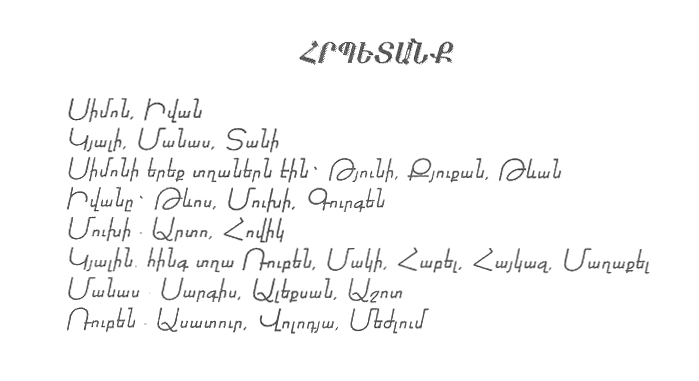 ՀՐՊԵՏԱՆՔ
Սիմոն, Իվան
Կյալի, Մանաս, Տանի
Սիմոնի երեք տղաներն էին՝ Թյունի, Քյուքան, Թևան
Իվանը՝ Թևոս, Մուխի, Գուրգեն
Մուխի - Արտո, Հովիկ
Կյալին. հինգ տղա Ռուբեն, Մակի, Հաբել, Հայկազ, Մաղաքել
Մանաս - Սարգիս, Ալեքսան, Աշոտ
Ռուբեն - Ասատուր, Վոլոդյա, Մեժլում